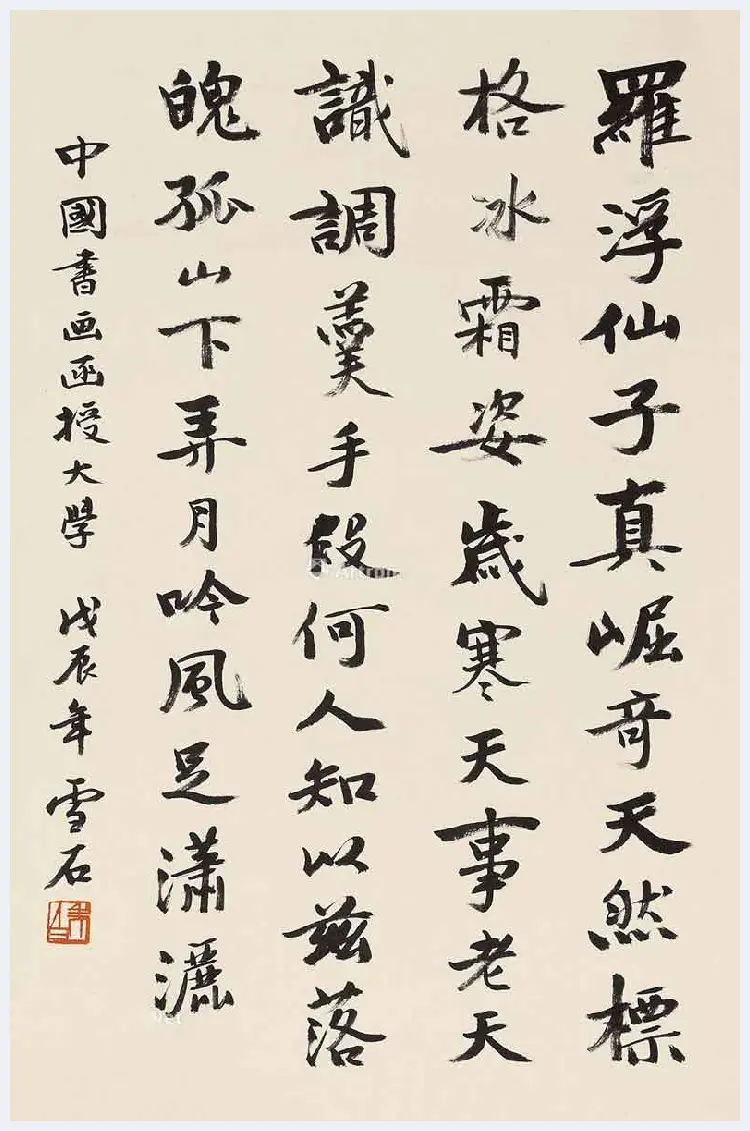 羅浮仙子真崛奇天然標
格冰霜姿歲寒天事老天
識調羹手段何人知以茲落
魄孤山下弄月吟風足瀟灑
中國書画函授大學 戊辰年 雪石